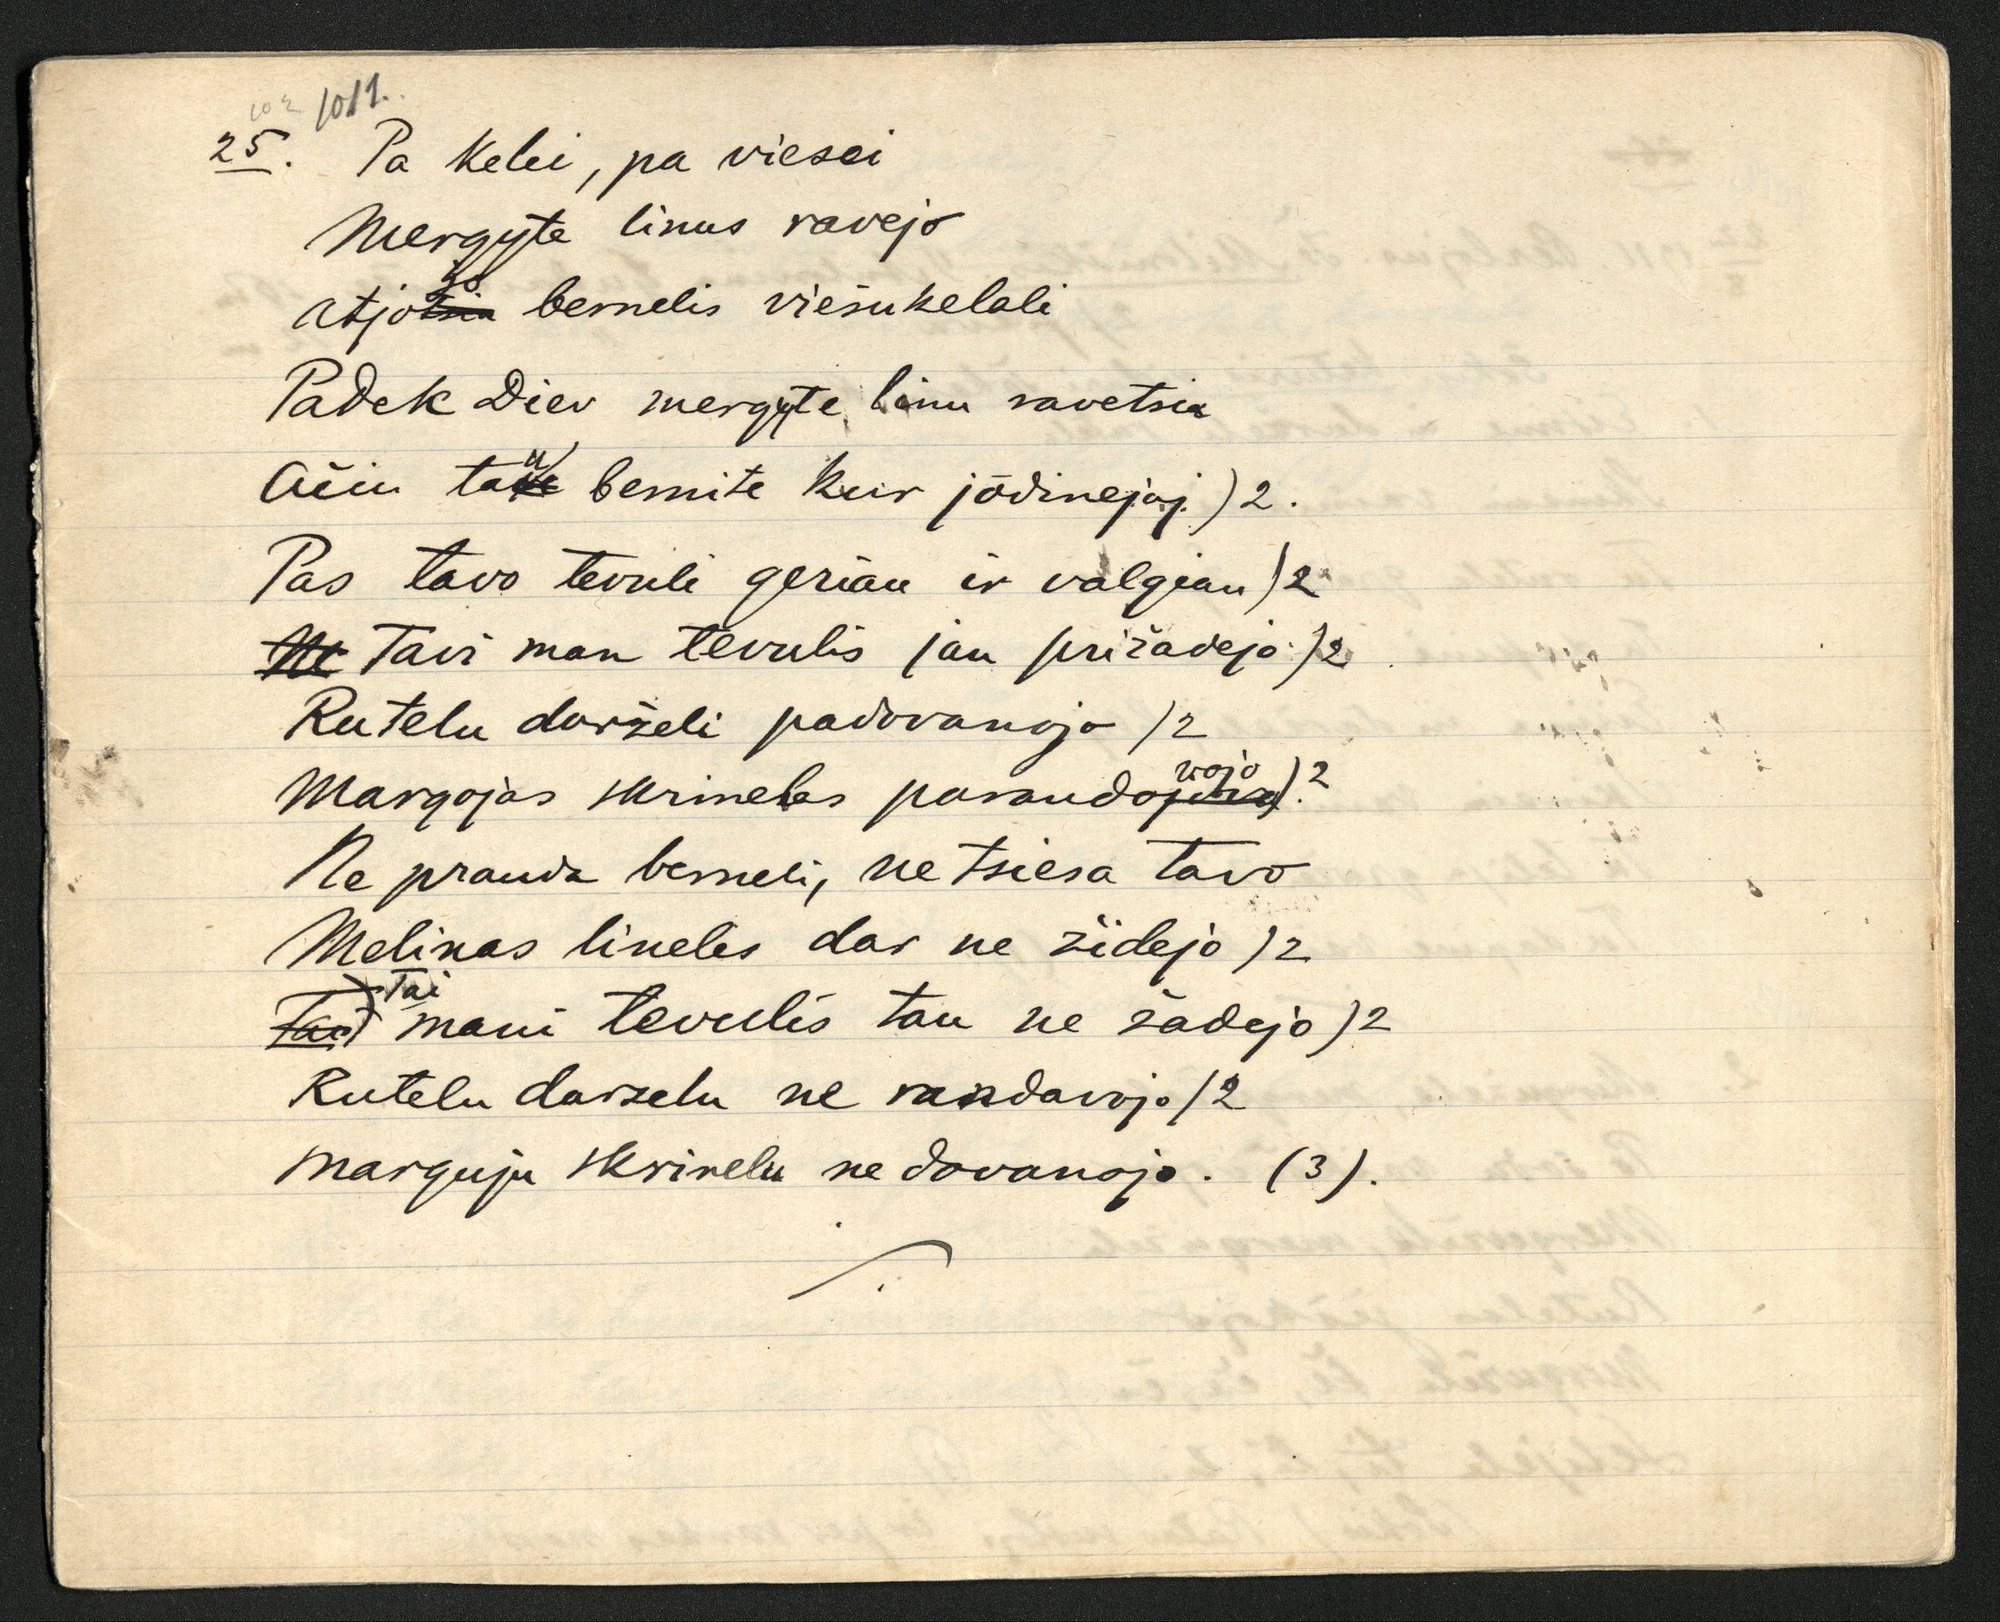 102 1011.
25. Pa kelei, pa viesei
Mergyte linus ravejo
atjojo bernelis viešukelali
Padek Diev mergyte linu ravetsia
Ačiu tau bernite kur jodinejaj )2.
Pas tavo tevuli geriau ir valgiau )2
Tavi man tevulis jau prižadejo )2
Rutelu darželi padovanojo )2
Margojas skrineles parandavojo ).2
Ne prauda berneli, ne tsiesa tavo
Melinas lineles dar ne židejo )2
Tai mani tevulis tau ne žadejo )2
Rutelu darzelu ne randavojo )2
Marguju skrinelu ne dovanojo. (3).